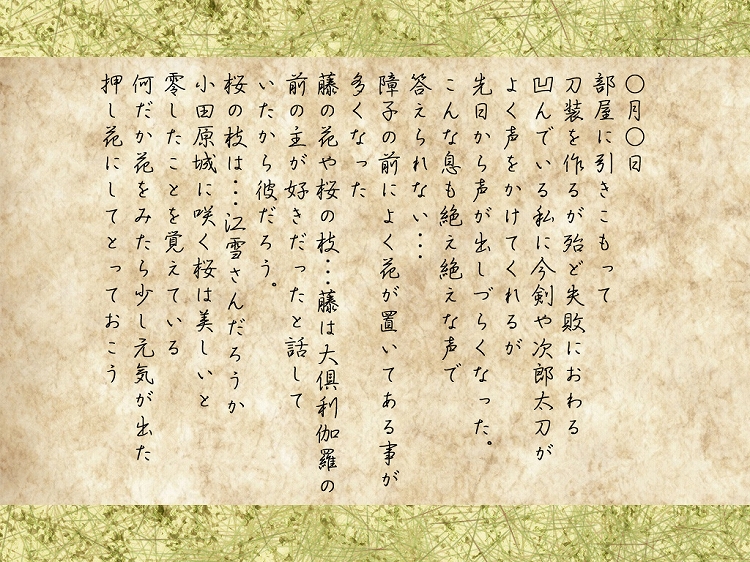 〇月〇日
部屋に引きこもって
刀装を作るが殆ど失敗におわる
凹んでいる私に今剣や次郎太刀が
よく声をかけてくれるが
先日から声が出しづらくなった。
こんな息も絶え絶えな声で
答えられない…
障子の前によく花が置いてある事が
多くなった
藤の花や桜の枝…藤は大倶利伽羅の
前の主が好きだったと話して
いたから彼だろう。
桜の枝は…江雪さんだろうか
小田原城に咲く桜は美しいと
零したことを覚えている
何だか花をみたら少し元気が出た
押し花にしてとっておこう